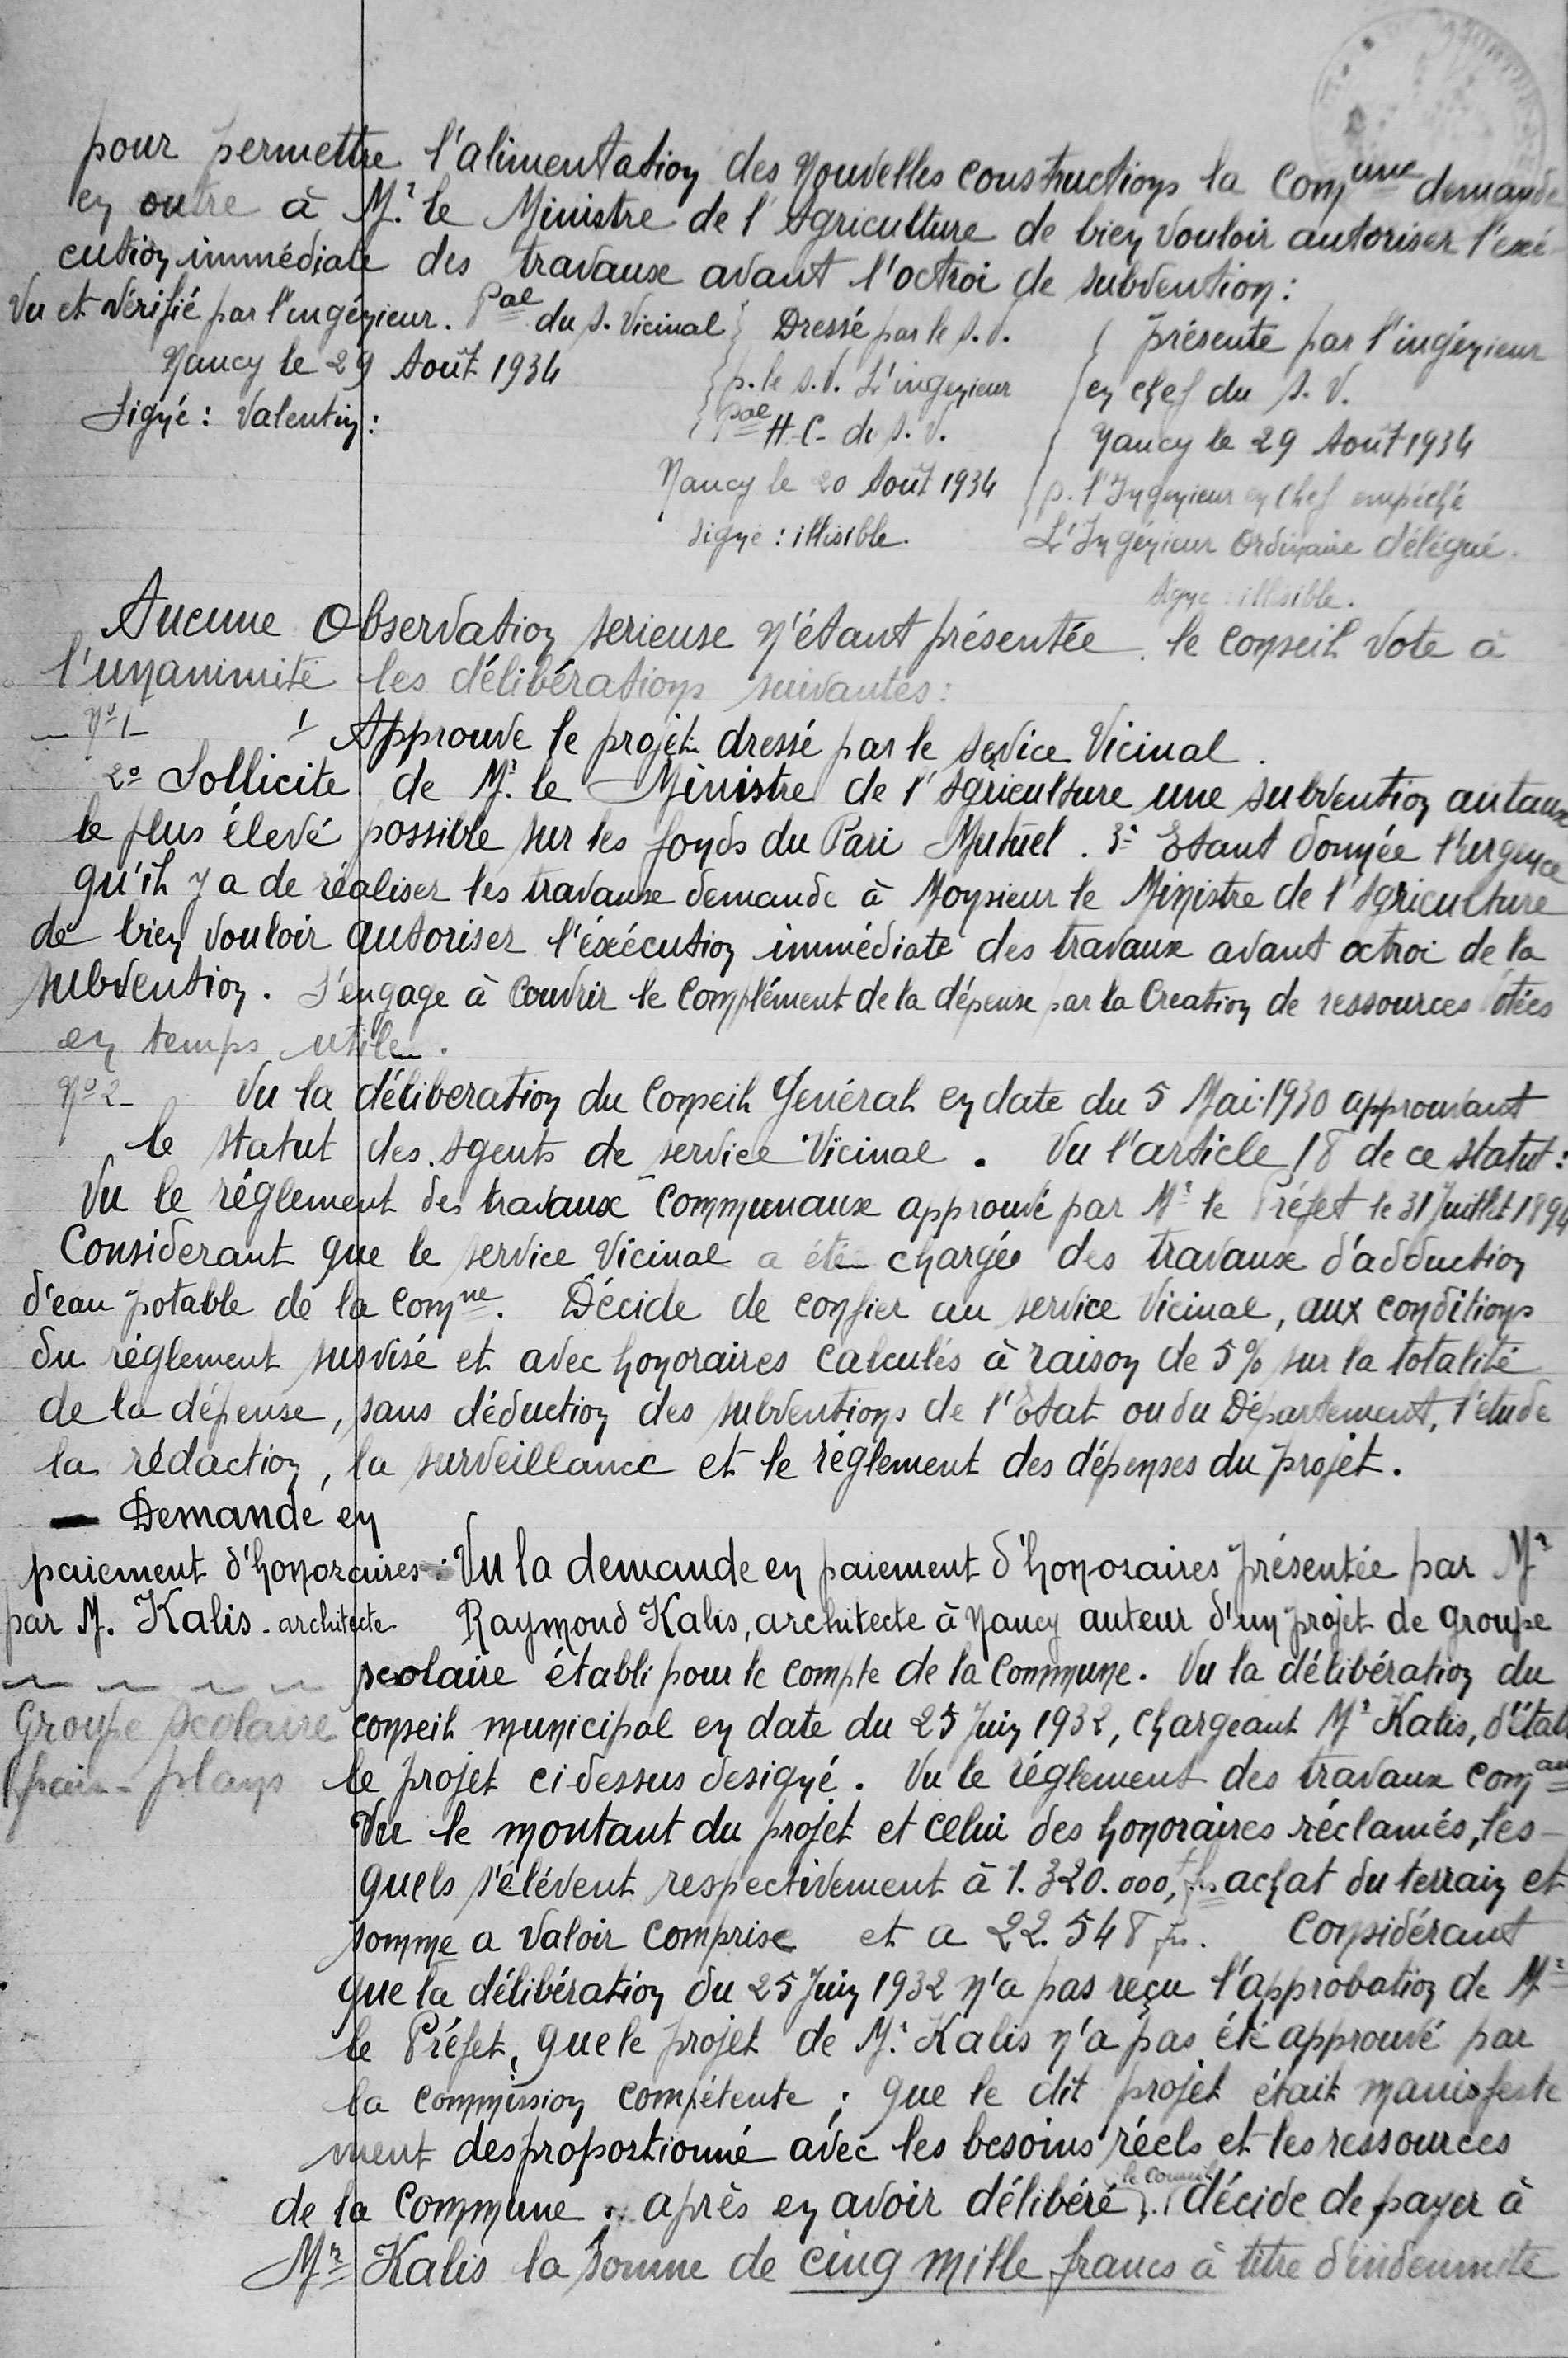 pour permettre l'alimentation des Nouvelles constructions la Comᵐᵘⁿᵉ demande
en outre à Mʳ. le Ministre de l'Agriculture de bien vouloir autoriser l'exé
cution immédiate des travaux avant l'octroi de subvention :
Vu et vérifié par l'ingénieur. Pᵃˡ du S. Vicinal
Nancy le 29 Août 1934
Signé : Valentin :
Dressé par le S.V.
p. le S.V. L'ingenieur
Pᵃˡ H-C- du S.V.
Nancy le 20 Août 1934
signé : illisible.
présenté par l'ingénieur
en chef du S.V.
Nancy le 29 Août 1934
p. l'Ingenieur en Chef empêché
L'Ingénieur Ordinaire délégué.
signé : illisible.
Aucune Observation serieuse n'étant présentée. le conseil vote à
l'unanimité les délibérations suivantes :
Nº 1- 1 Approuve le projet dressé par le service Vicinal.
2º Sollicite de Mʳ. le Ministre de l'Agriculture une subvention au taux
le plus élevé possible sur les fonds du Pari Mutuel. 3º Etant donnée l'urgence
qu'il y a de réaliser les travaux demande à Monsieur le Ministre de l'Agriculture
de bien vouloir autoriser l'éxécution immédiate des travaux avant octroi de la
subvention. S'engage à couvrir le complément de la dépense par la Creation de ressources votées
en temps utile.
Nº 2- Vu la déliberation du Conseil Général en date du 5 Mai 1930 approuvant
le statut des Agents de service Vicinal. Vu l'article 18 de ce statut :
Vu le réglement des travaux Communaux approuvé par Mʳ le Préfet le 31 Juillet 1894
Considerant que le service Vicinal a été chargée des travaux d'adduction
d'eau potable de la comⁿᵉ. Décide de confier au service Vicinal, aux conditions
du réglement susvisé et avec honoraires calculés à raison de 5% sur la totalité
de la dépense, sans déduction des subventions de l'Etat ou du Département, l'étude
la rédaction, la surveillance et le réglement des dépenses du projet.
— Demande en
paiement d'honoraires :
par M. Kalis - architecte
Groupe scolaire
plans
Vu la demande en paiement d'honoraires présentée par Mʳ
Raymond Kalis, architecte à Nancy auteur d'un projet de groupe
scolaire établi pour le compte de la Commune. Vu la délibération du
conseil municipal en date du 25 Juin 1932, chargeant Mʳ Kalis, d'étab
le projet ci dessus designé. Vu le réglement des travaux comᵃᵘˣ
Vu le montant du projet et celui des honoraires réclamés, les-
quels s'élévent respectivement à 1.320.000, frs achat du terrain et
somme a valoir comprise et a 22.548 frs. Considérant
que la délibération du 25 Juin 1932 n'a pas reçu l'approbation de Mʳ
le Préfet, que le projet de Mʳ. Kalis n'a pas été approuvé par
la commission compétente ; que le dit projet était manifeste
ment desproportionné avec les besoins réels et les ressources
de la Commune. après en avoir délibéré, le Conseil décide de payer à
Mʳ Kalis la somme de cinq mille francs à titre d'indemnité